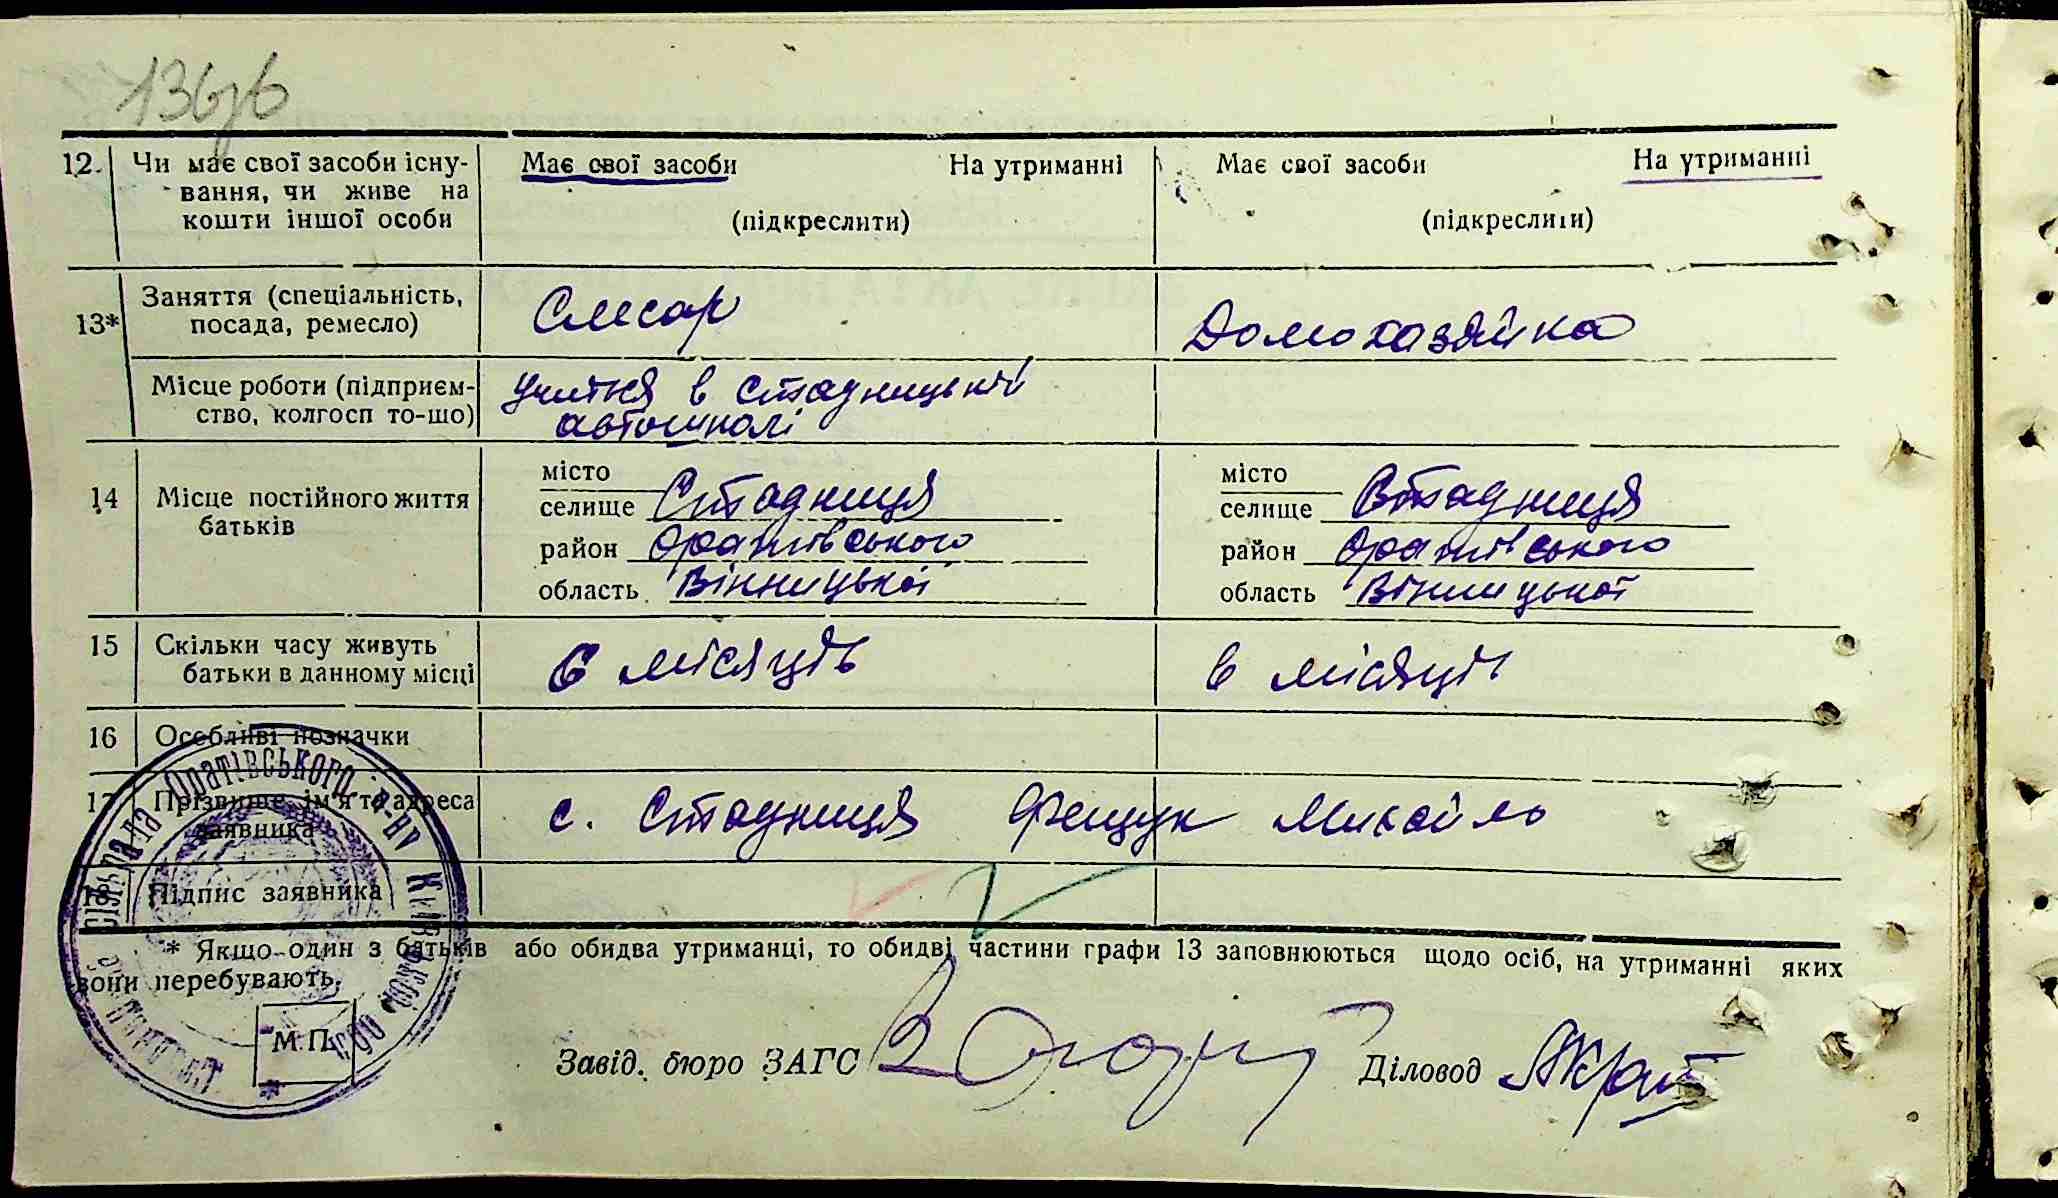 136зв
12. Чи має свої засоби існу- Має свої засоби На утриманні Має свої засоби На утриманні
вання, чи живе на
кошти іншої особи (підкреслити) (підкреслити)
13* Заняття (спеціальність, посада, ремесло) Слесар Домохазяйка
Місце роботи (підприєм- учитєя в стадницькій
ство, колгосп то-що) автошколі
місто місто
14 Місце постійного життя селище Стадниця селище Стадниця
батьків
район Оратівського район Оратівського
область Вінницької область Вінницької
15 Скільки часу живуть
батьки в данному місці 6 місяців 6 місяців
16 Особливі позначки
17 Прізвище, ім'я та адреса с. Стадниця Фещук Михайло
заявника
Підпис заявника
* Якщо один з батьків або обидва утриманці, то обидві частини графи 13 заповнюються щодо осіб, на утриманні яких
вони перебувають.
М. П.
Завід. бюро ЗАГС Діловод
сільрада Оратівського р-ну Київської обл.